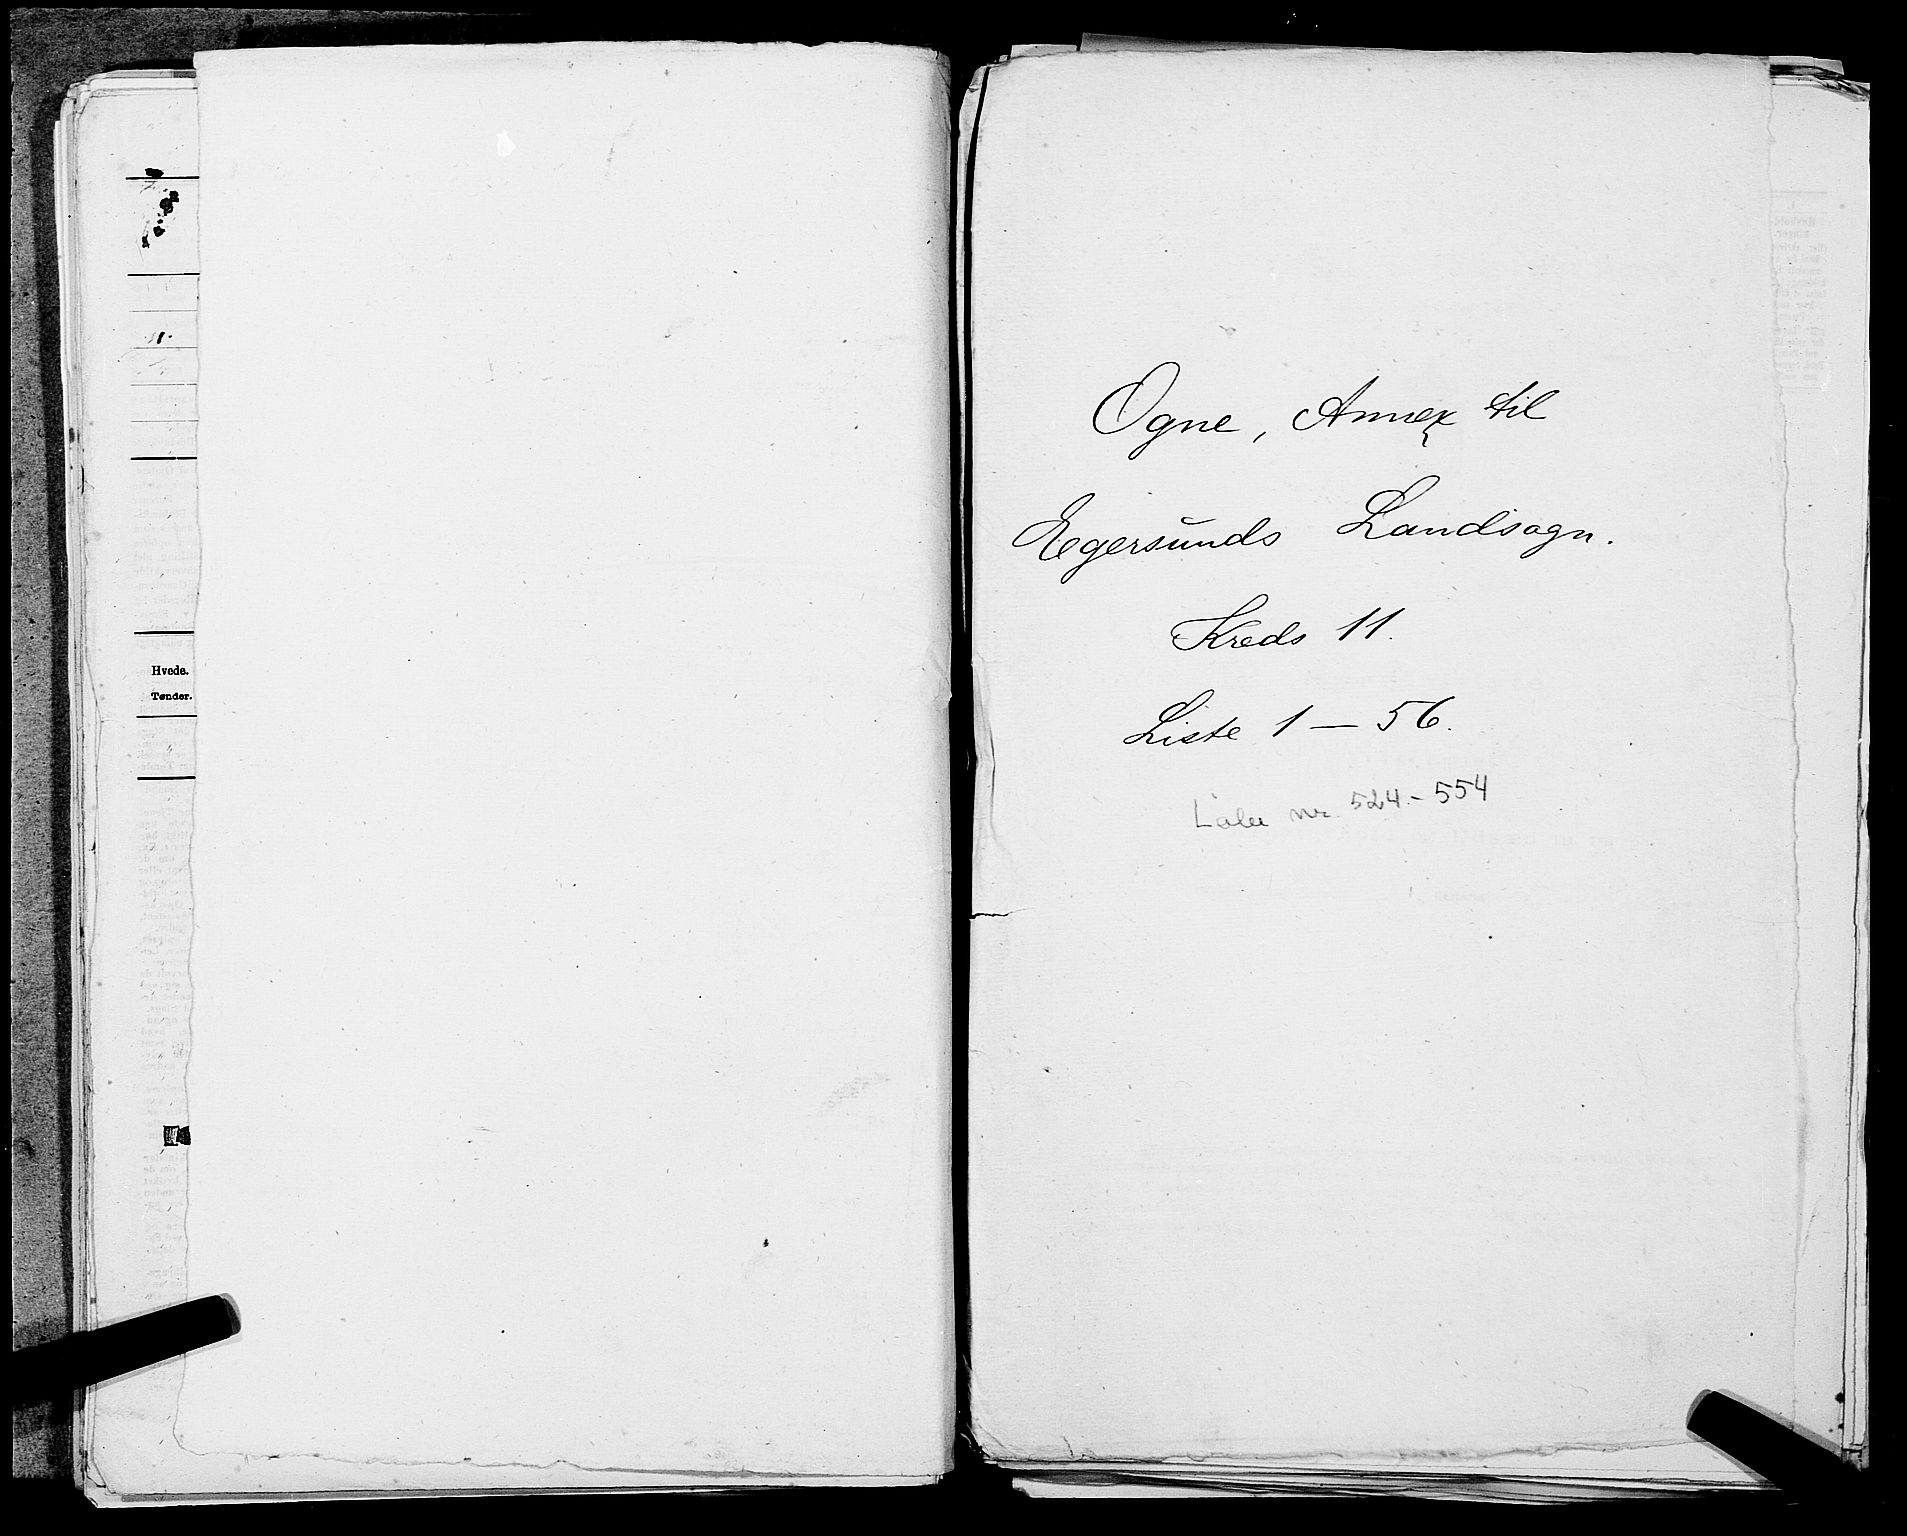 Hvede.
Tønder.
Ogne, Annex til
Egersunds Landsogn.
Kreds 11.
Liste 1 — 56.
nr. 524.- 554